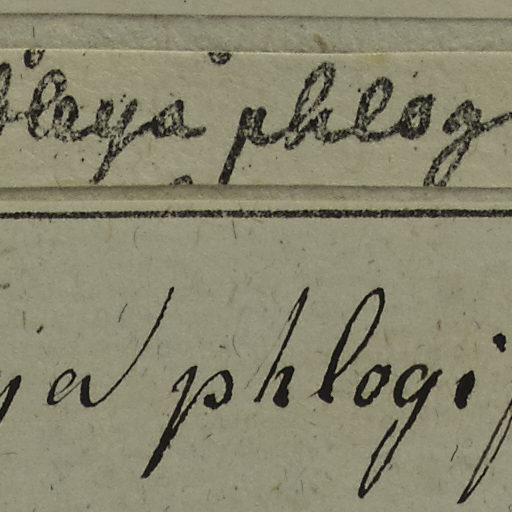 leya phlog
ya phlogi